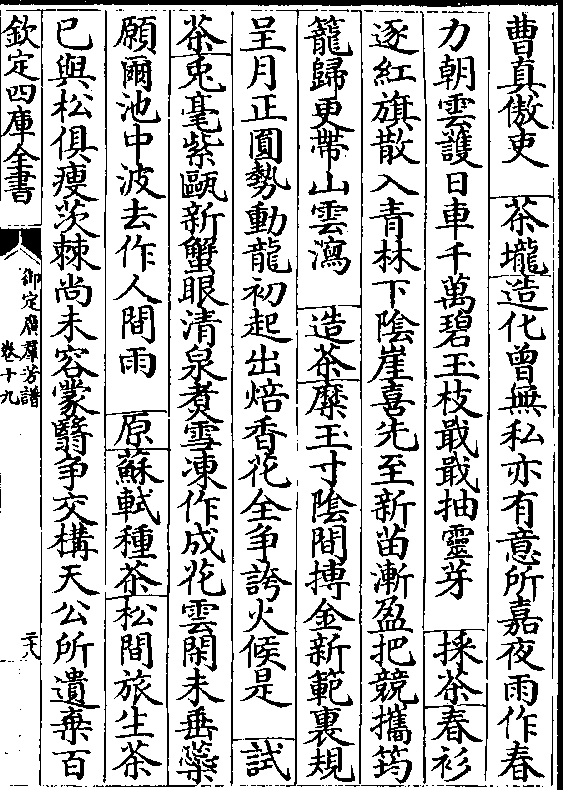 曹真傲吏　茶壠造化曾無私亦有意所嘉夜雨作春
力朝雲護日車千萬碧玉枝戢戢抽靈芽　採茶春衫
逐紅旗散入青林下陰崖喜先至新苗漸盈把競攜筠
籠歸更帶山雲瀉　造茶糜玉寸陰間摶金新範裏規
呈月正圓勢動龍初起出焙香花全争誇火候是　試
茶兎毫紫甌新蟹眼清泉煑雪凍作成花雲閑未垂蘂
願爾池中波去作人間雨　原蘇軾種茶松間旅生茶
已與松俱瘦茨棘尚未容蒙翳争交構天公所遺棄百
欽定四庫全書
御定廣羣芳譜
卷十九
二十八